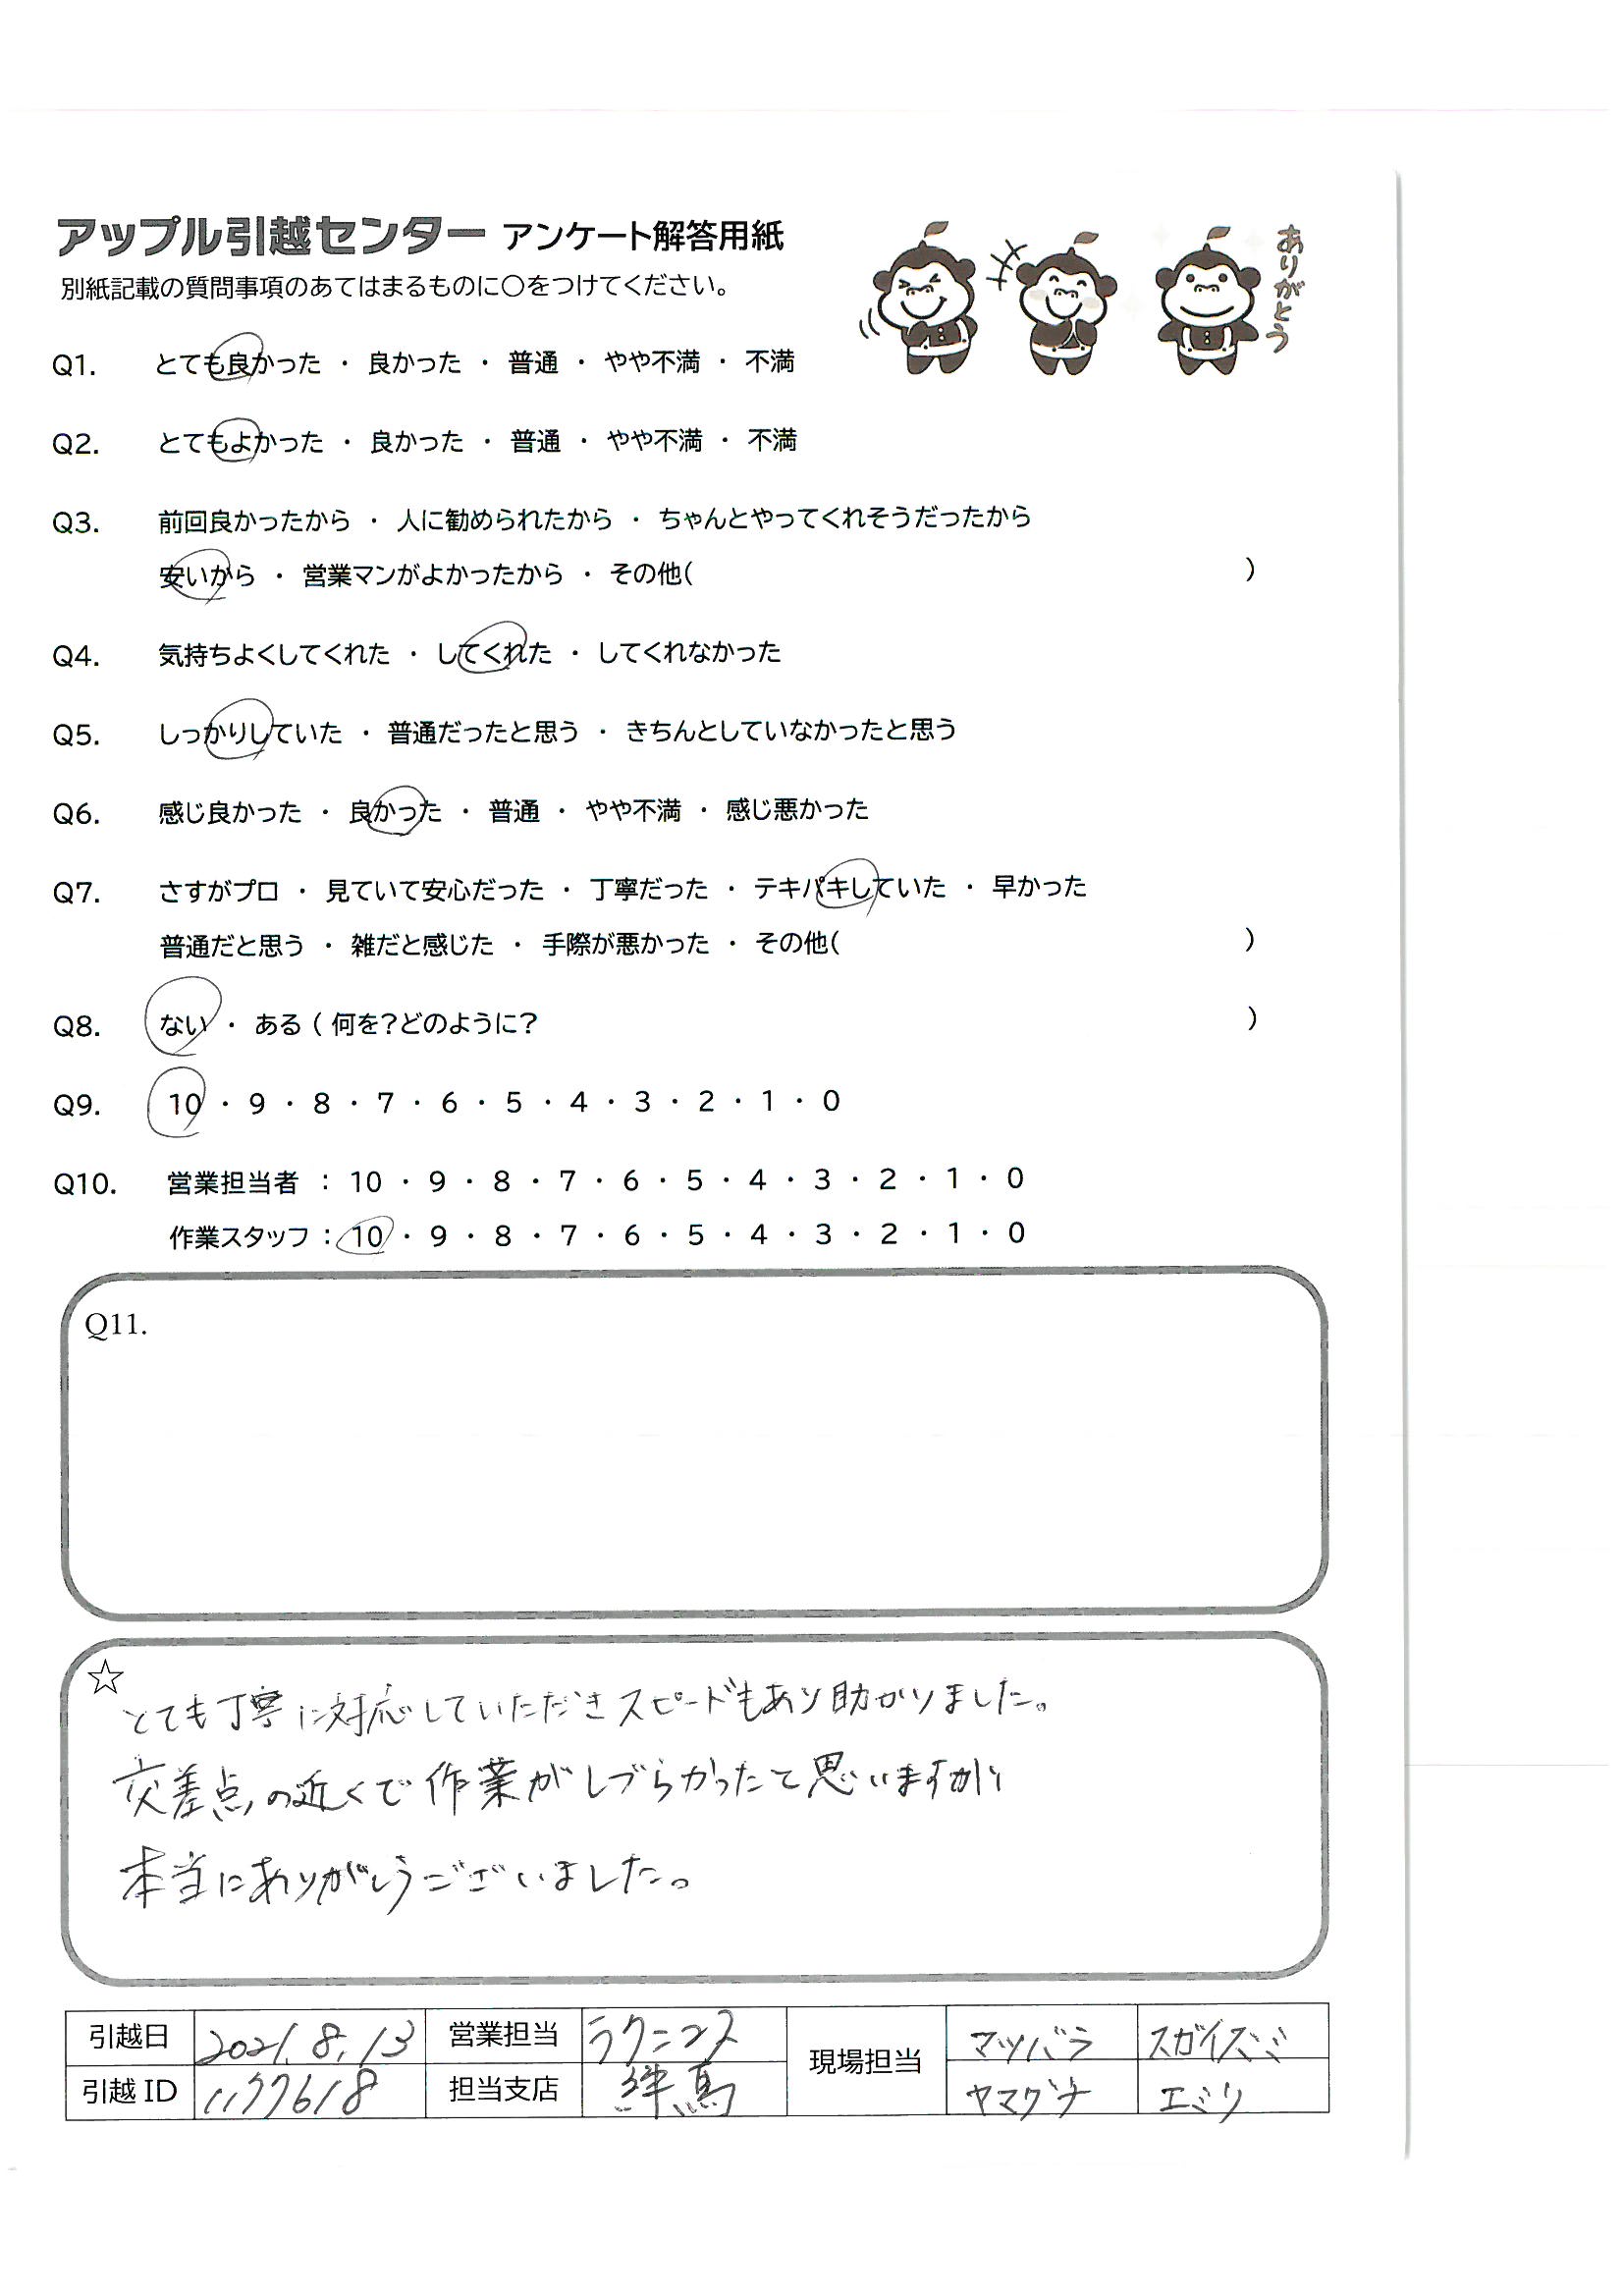 アップル引越センター アンケート解答用紙
別紙記載の質問事項のあてはまるものに〇をつけてください。
ありがとう
Q1. とても良かった ・ 良かった ・ 普通 ・ やや不満 ・ 不満
Q2. とてもよかった ・ 良かった ・ 普通 ・ やや不満 ・ 不満
Q3. 前回良かったから ・ 人に勧められたから ・ ちゃんとやってくれそうだったから
安いから ・ 営業マンがよかったから ・ その他( )
Q4. 気持ちよくしてくれた ・ してくれた ・ してくれなかった
Q5. しっかりしていた ・ 普通だったと思う ・ きちんとしていなかったと思う
Q6. 感じ良かった ・ 良かった ・ 普通 ・ やや不満 ・ 感じ悪かった
Q7. さすがプロ ・ 見ていて安心だった ・ 丁寧だった ・ テキパキしていた ・ 早かった
普通だと思う ・ 雑だと感じた ・ 手際が悪かった ・ その他( )
Q8. ない ・ ある ( 何を?どのように? )
Q9. 10 ・ 9 ・ 8 ・ 7 ・ 6 ・ 5 ・ 4 ・ 3 ・ 2 ・ 1 ・ 0
Q10. 営業担当者 : 10 ・ 9 ・ 8 ・ 7 ・ 6 ・ 5 ・ 4 ・ 3 ・ 2 ・ 1 ・ 0
作業スタッフ : 10 ・ 9 ・ 8 ・ 7 ・ 6 ・ 5 ・ 4 ・ 3 ・ 2 ・ 1 ・ 0
Q11.
☆
とても丁寧に対応していただきスピードもあり助かりました。
交差点の近くで作業がしづらかったて思いますが
本当にありがとうございました。
引越日 2021.8.13 営業担当 ラクニコス 現場担当 マツバラ スガイズミ
引越 ID 1177618 担当支店 練馬 ヤマグチ エミリ